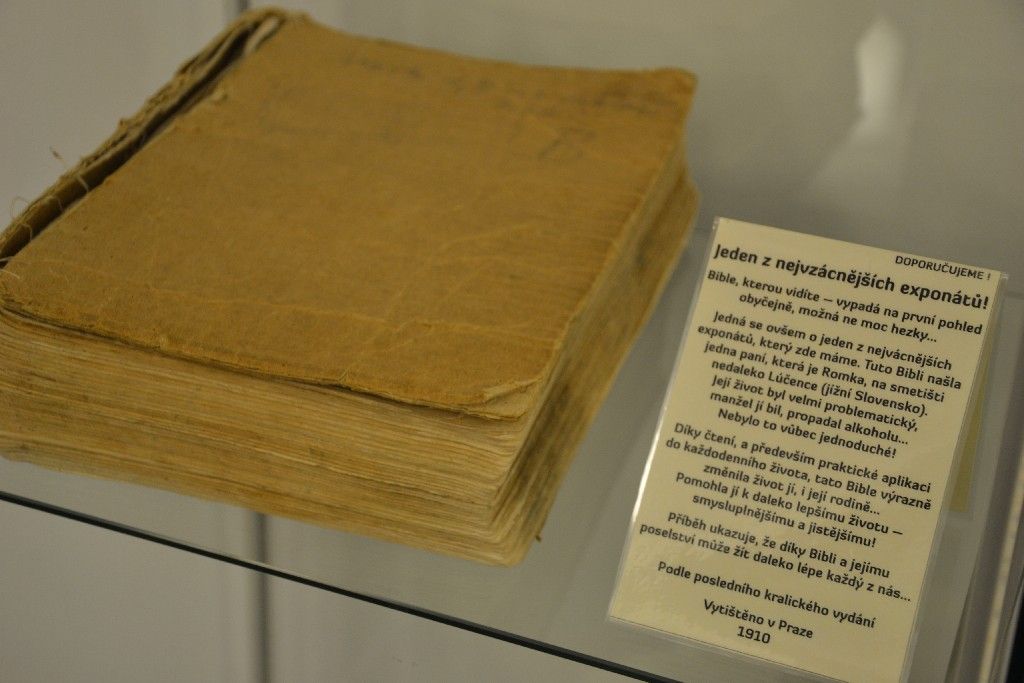 DOPORUČUJEME !
Jeden z nejvzácnějších exponátů!
Bible, kterou vidíte – vypadá na první pohled
obyčejně, možná ne moc hezky...
Jedná se ovšem o jeden z nejvácnějších
exponátů, který zde máme. Tuto Bibli našla
jedna paní, která je Romka, na smetišti
nedaleko Lúčence (jížní Slovensko).
Její život byl velmi problematický,
manžel jí bil, propadal alkoholu...
Nebylo to vůbec jednoduché!
Díky čtení, a především praktické aplikaci
do každodenního života, tato Bible výrazně
změnila život jí, i její rodině...
Pomohla jí k daleko lepšímu životu –
smysluplnějšímu a jistějšímu!
Příběh ukazuje, že díky Bibli a jejímu
poselství může žít daleko lépe každý z nás...
Podle posledního kralického vydání
Vytištěno v Praze
1910